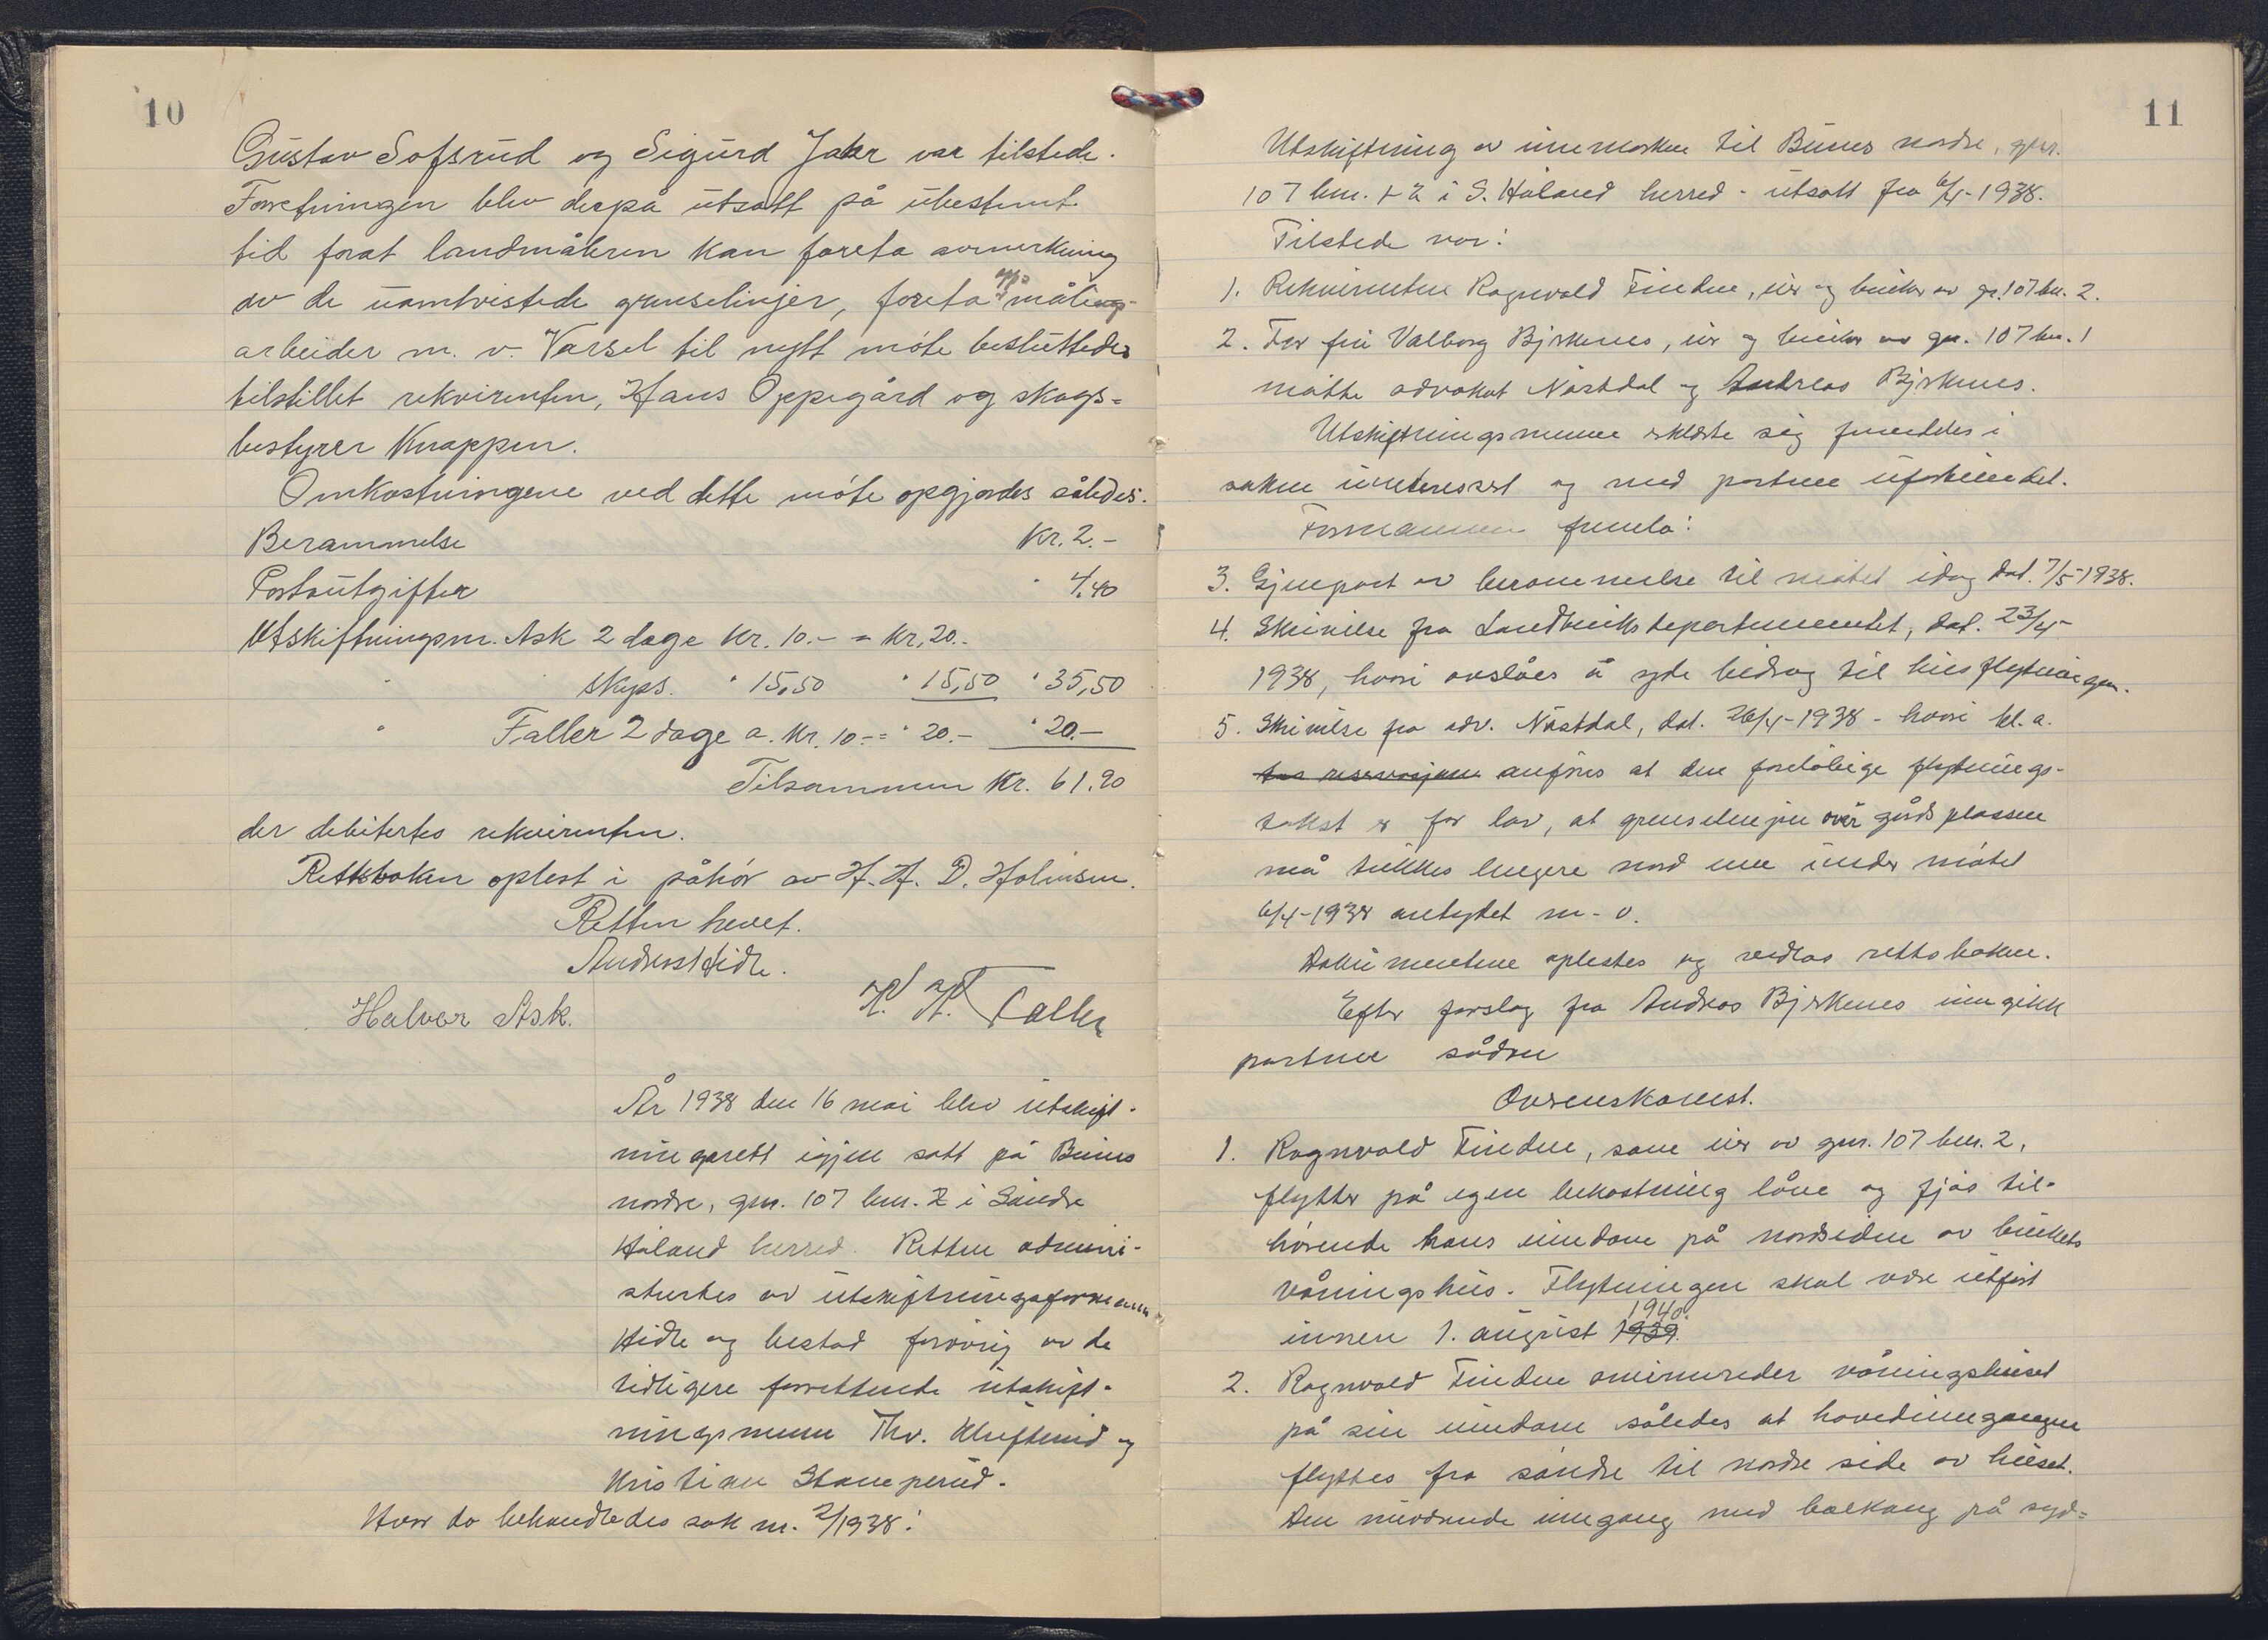 10
Gustav Sofsrud og Sigurd Jahr var tilstede.
Forretningen blev derpå utsatt på ubestemt
tid forat landmåleren kan foreta avmerkning
av de uomtvistede grenselinjer, foreta opp målings-
arbeider m. v. Varsel til nytt møte besluttedes
tilstillet rekvirenten, Hans Oppegård og skogs=
bestyrer Knappen.
Omkostningene ved dette møte opgjordes således:
Berammelse Kr. 2.-
Postoutgifter " 4,40
Utskiftningsm. Ask 2 dage Kr. 10.- = Kr. 20.-
" skyss. " 15,50 " 15,50 " 35,50
" Faller 2 dage a. Kr. 10.- = " 20.- " 20.-
Tilsammen Kr. 61.90
der debitertes rekvirenten.
Rettsboken oplest i påhør av H. H. D. Holmsen.
Retten hevet.
Anders Hidle.
Halvor Ask. H. H. Faller
År 1938 den 16 mai blev utskift-
ningsrett igjen satt på Bunes
nordre, gnr. 107 bnr. 2 i Søndre
Høland herred. Retten admini-
strertes av utskiftningsformann
Hidle og bestod forøvrig av de
tidligere forrettende utskift-
ningsmenn Thv. Klufterud og
Kristian Stamperud.
Hvor da behandledes sak nr. 2/1938:
11
Utskiftning av innmarken til Bunes nordre, gnr.
107 bnr. 1 & 2 i S. Høland herred - utsatt fra 6/4-1938.
Tilstede var:
1. Rekvirenten Ragnvald Finden, eier og bruker av gr. 107 bn. 2.
2. For fru Valborg Bjerknes, eier og bruker av gnr. 107 bn. 1
møtte advokat Nastdal og Andreas Bjerknes.
Utskiftningsmenn erklærte sig fremdeles i
saken uinteressert og med partene ubeslektet.
Formannen fremla:
3. Gjenpart av berammelse til møtet idag dat. 7/5-1938.
4. Skrivelse fra Landbruksdepartementet, dat. 23/4-
1938, hvori avslåes å yde bidrag til husflytningen.
5. Skrivelse fra adv. Nastdal, dat. 26/4-1938 - hvori bl. a.
tas reservasjon anføres at den foreløbige flytnings-
takst er for lav, at grenselinjen over gårdsplassen
må trekkes lengere nord enn under møtet
6/4-1938 antydet m. v.
Dokumentene oplestes og vedlas rettsboken.
Efter forslag fra Andreas Bjerknes inngikk
partene sådan
Overenskomst.
1. Ragnvald Finden, som eier av gnr. 107 bnr. 2,
flytter på egen bekostning låve og fjøs til-
hørende hans eiendom på nordsiden av brukets
våningshus. Flytningen skal være utført
innen 1. august 1939. 1940.
2. Ragnvald Finden ominnreder våningshuset
på sin eiendom således at hovedinngangen
flyttes fra søndre til nordre side av huset.
Den nuværende inngang med balkong på syd=